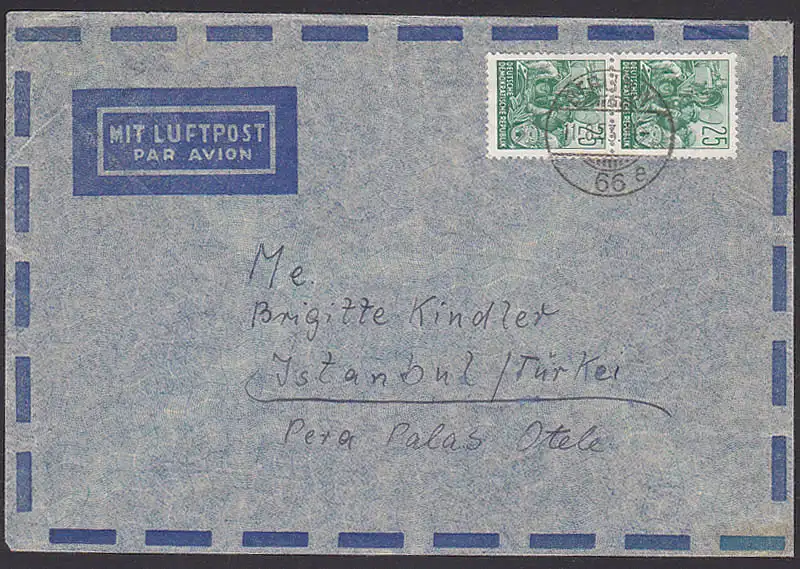 MIT LUFTPOST
PAR AVION
DEUTSCHE
DEMOKRATISCHE REPUBLIK
25
DEUTSCHE
DEMOKRATISCHE REPUBLIK
25
66 a
Me.
Brigitte Kindler
Istanbul/Türkei
Pera Palas Otele